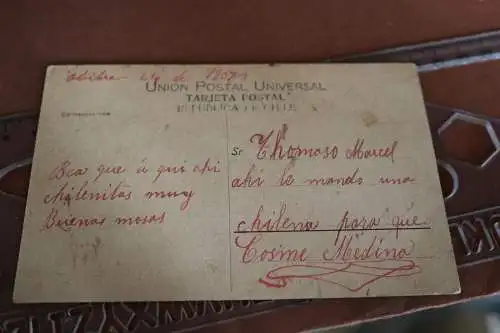 Octubre de 1907
UNION POSTAL UNIVERSAL
TARJETA POSTAL
REPUBLICA DE CHILE
Sr Thomoso Marcel
ahi le mando una
chilena para que
Cosme Medina
Bea que a qui api
chilenitas muy
Buenas mosas